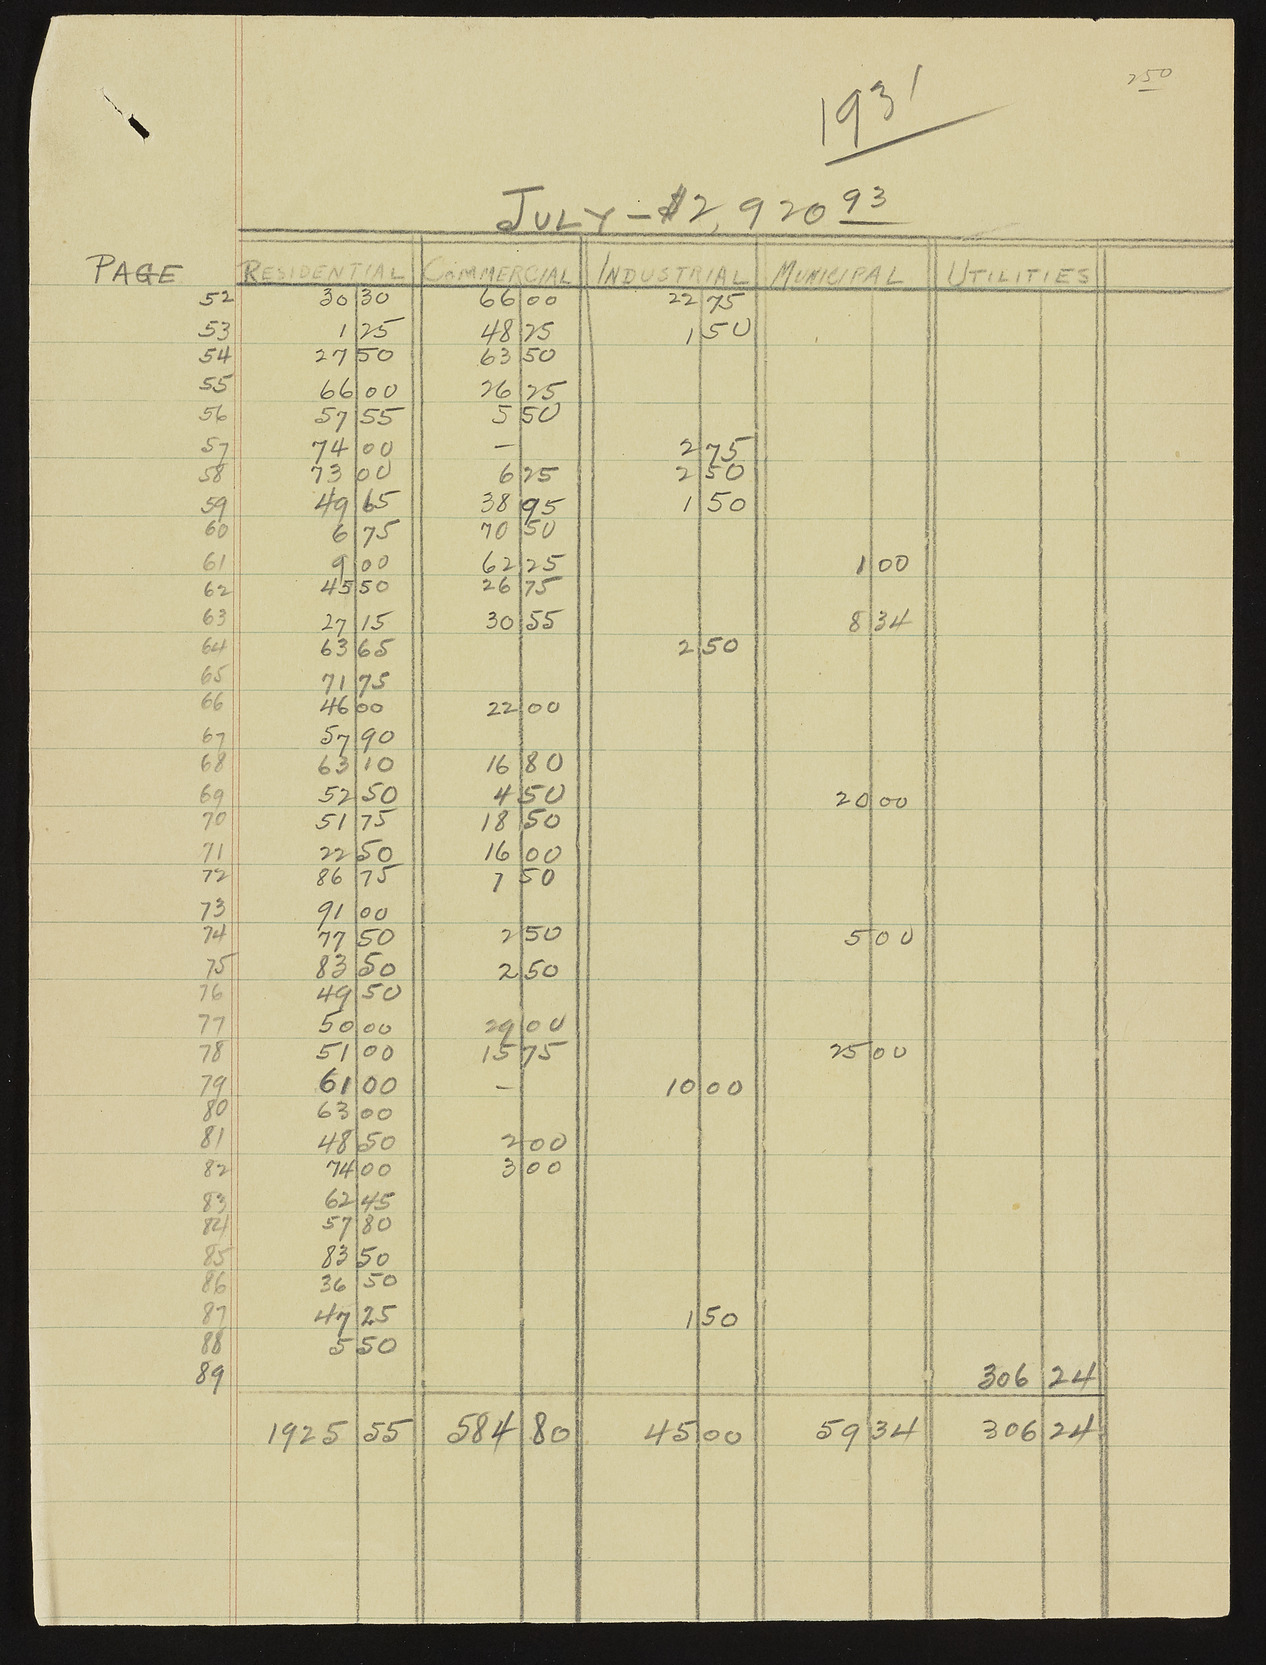 250
1931
JULY - $2,920 93
PAGE RESIDENTIAL COMMERCIAL INDUSTRIAL MUNICIPAL UTILITIES
52 30 30 66 00 22 75
53 1 25 48 25 1 50
54 27 50 63 50
55 66 00 26 25
56 57 55 5 50
57 74 00 — 2 75
58 73 00 6 25 2 50
59 49 65 38 95 1 50
60 6 75 70 50
61 9 00 62 25 1 00
62 45 50 26 75
63 27 15 30 55 8 34
64 63 65 2 50
65 71 75
66 46 00 22 00
67 57 90
68 63 10 16 80
69 52 50 4 50 20 00
70 51 75 18 50
71 22 50 16 00
72 86 75 7 50
73 91 00
74 77 50 2 50 5 00
75 83 50 2 50
76 49 50
77 50 00 29 00
78 51 00 15 75 25 00
79 61 00 — 10 00
80 63 00
81 48 50 2 00
82 74 00 3 00
83 62 45
84 57 80
85 83 50
86 36 50
87 47 25 1 50
88 5 50
89 306 24
1925 55 584 80 45 00 59 34 306 24